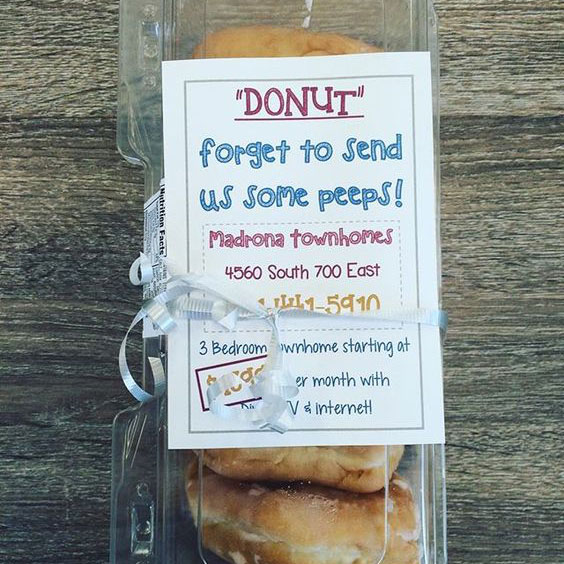 "DONUT"
forget to send
us some peeps!
Madrona townhomes
4560 South 700 East
441-5910
3 Bedroom townhome starting at
per month with
TV & Internet!
Nutrition Facts